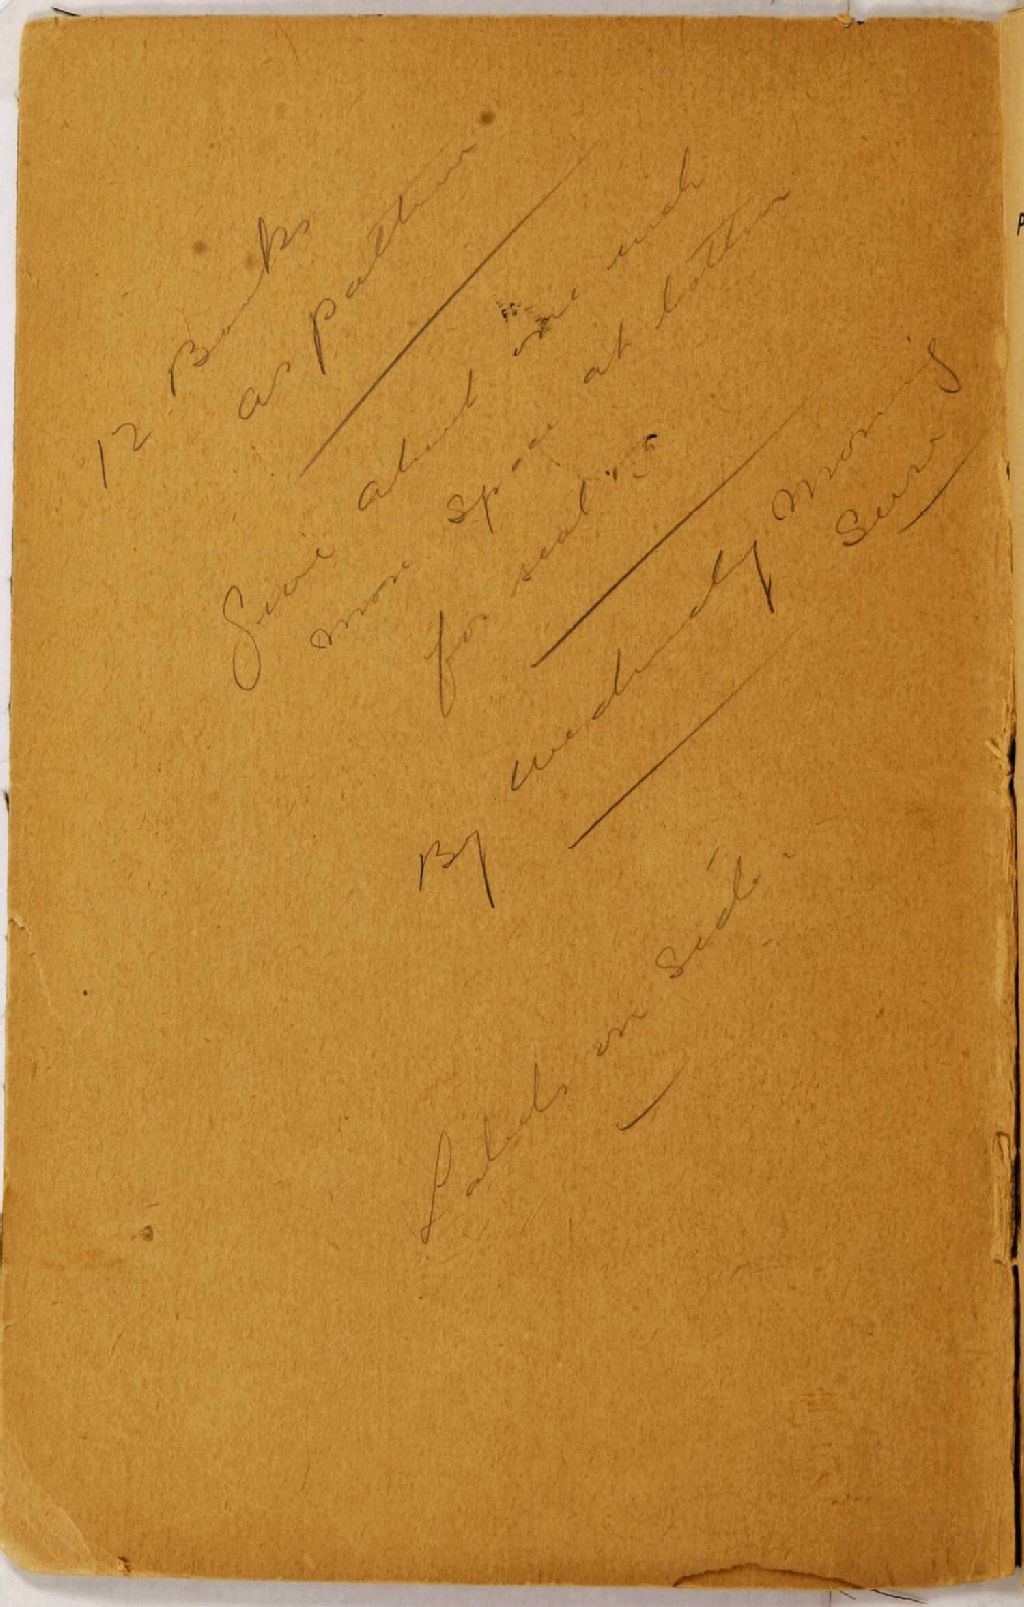 12 Books
as pattern
Give about one inch
more space at bottom
for seal
By wednesday morning
Sure
Labels on side